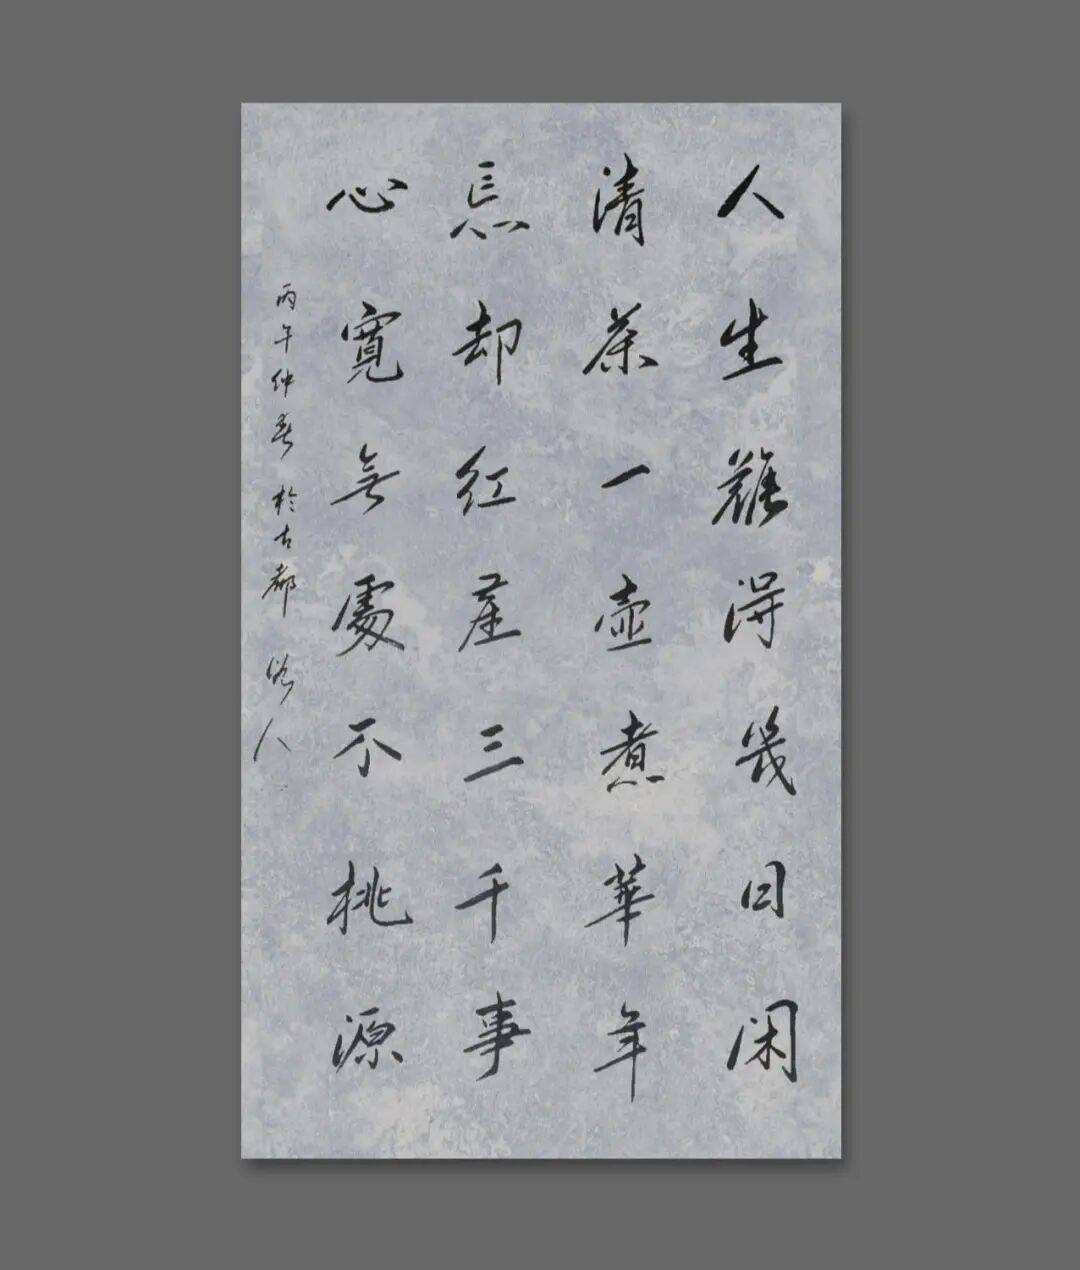 人生難得幾日闲
清茶一壺煮華年
忘却红塵三千事
心寬無處不桃源
丙午仲春於古都 人